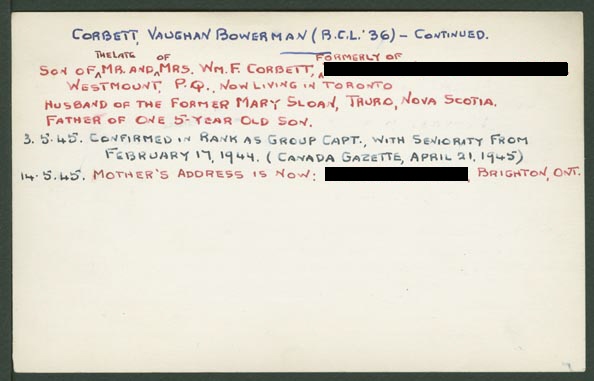 CORBETT, VAUGHAN BOWERMAN (B.C.L.'36) – CONTINUED.
SON OF THE LATE MR. AND OF MRS. WM. F. CORBETT, FORMERLY OF
WESTMOUNT, P.Q., NOW LIVING IN TORONTO
HUSBAND OF THE FORMER MARY SLOAN, TRURO, NOVA SCOTIA.
FATHER OF ONE 5-YEAR OLD SON.
3.5.45. CONFIRMED IN RANK AS GROUP CAPT., WITH SENIORITY FROM
FEBRUARY 17, 1944. (CANADA GAZETTE, APRIL 21, 1945)
14.5.45. MOTHER'S ADDRESS IS NOW: BRIGHTON, ONT.